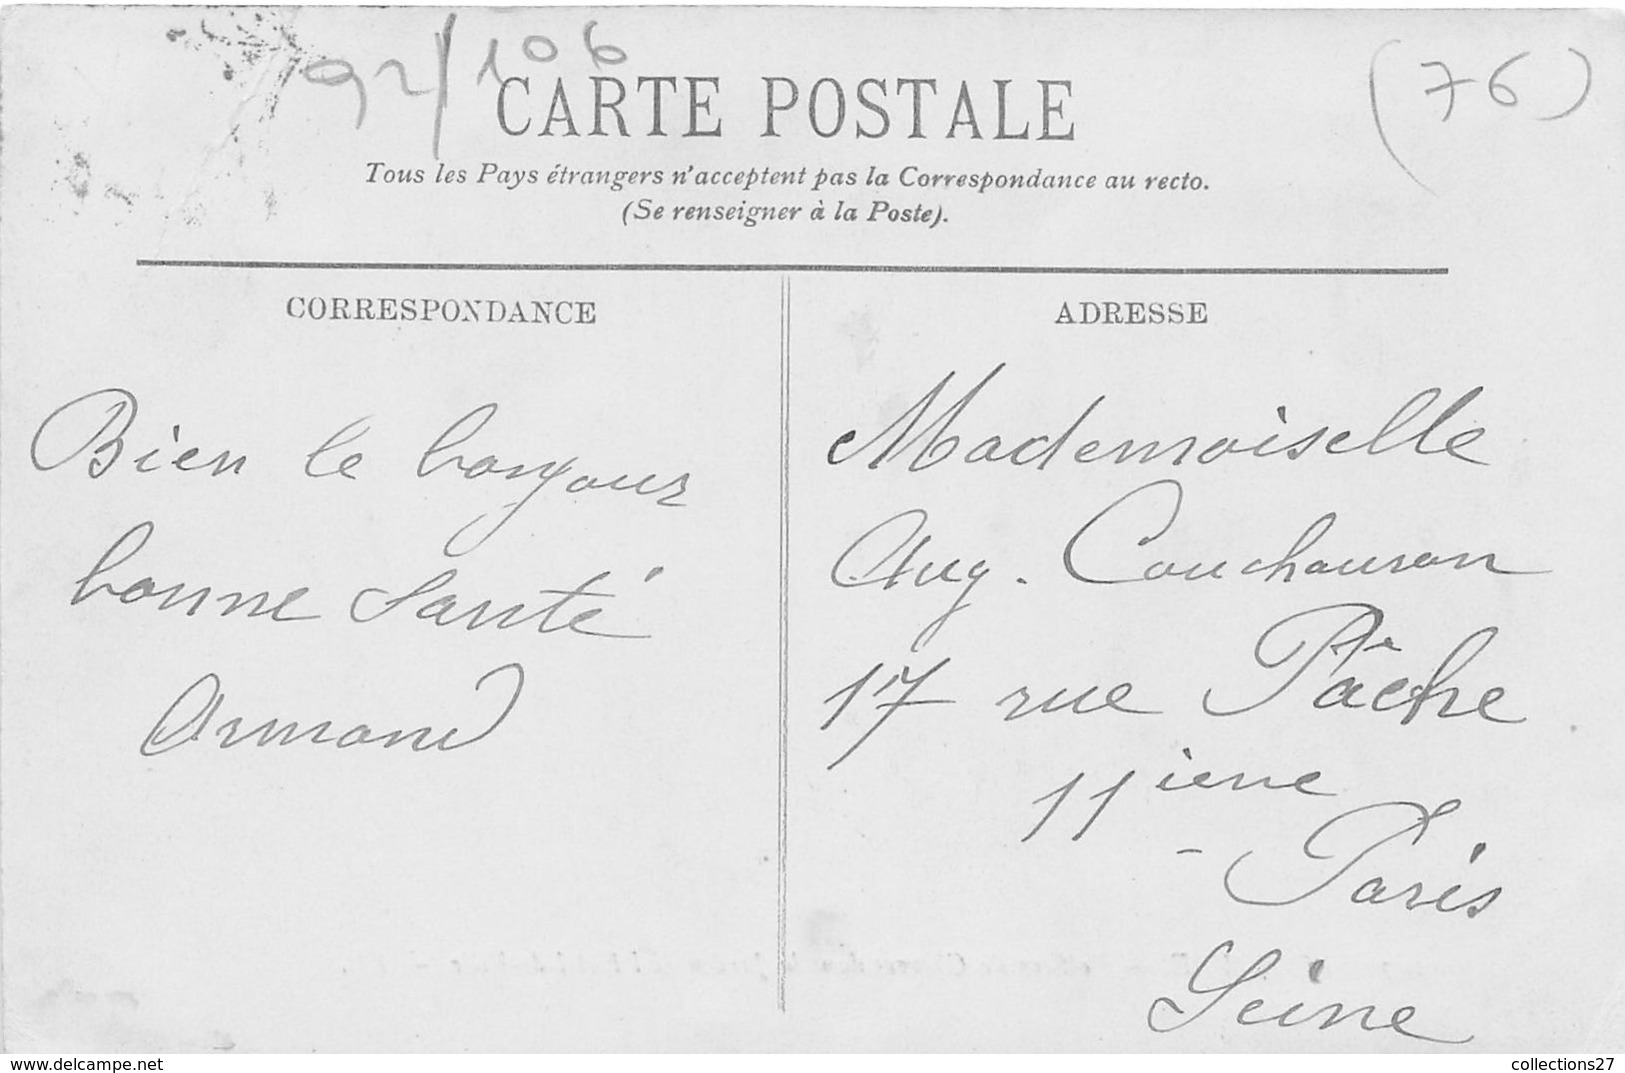 92/106
(76)
CARTE POSTALE
Tous les Pays étrangers n'acceptent pas la Correspondance au recto.
(Se renseigner à la Poste).
CORRESPONDANCE
Bien le bonjour
bonne Santé
Armand
ADRESSE
Mademoiselle
Aug. Couchouron
17 rue Pâche
11ième
Paris
Seine
www.delcampe.net
collections27